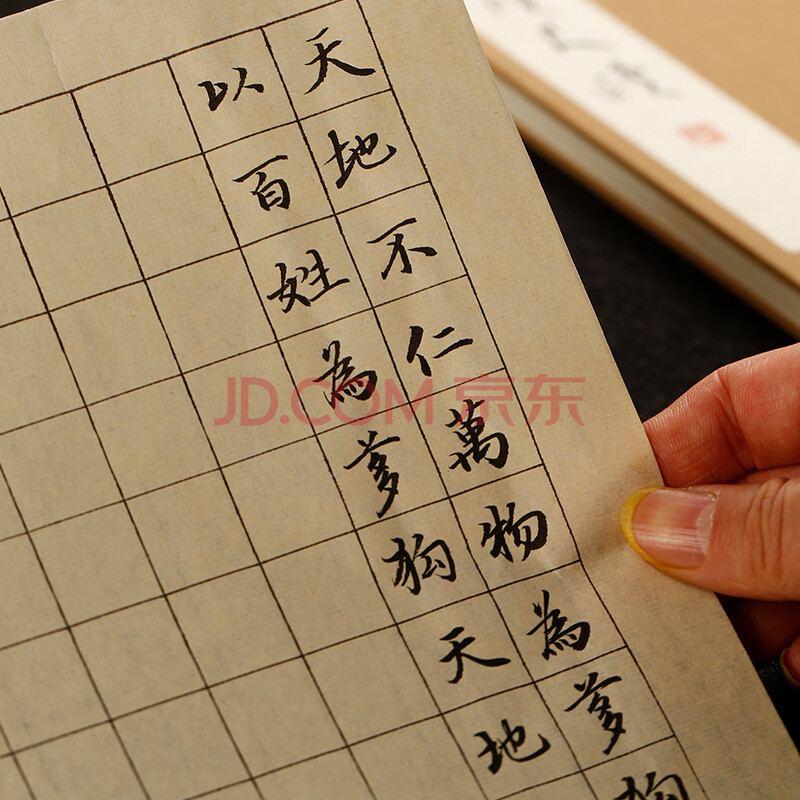 天地不仁萬物為芻狗
以百姓為芻狗天地
JD.COM 京东